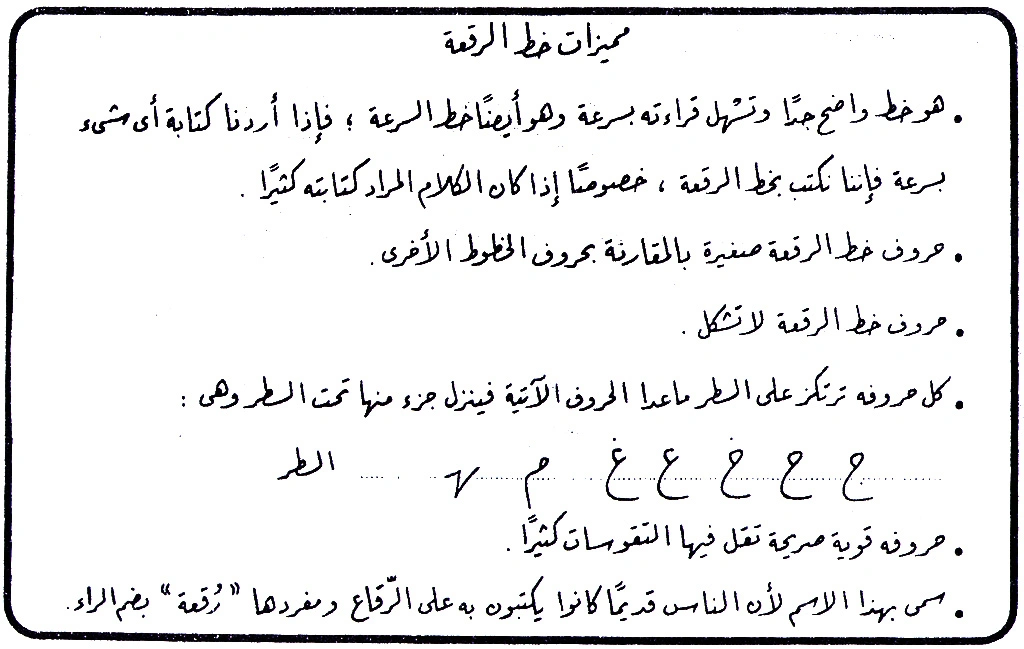 مميزات خط الرقعة
• هو خط واضح جدًا وتسْهل قراءته بسرعة وهو أيضًا خط السرعة ؛ فإذا أردنا كتابة أى شىء
بسرعة فإننا نكتب بخط الرقعة ، خصوصًا إذا كان الكلام المراد كتابته كثيرًا .
• حروف خط الرقعة صغيرة بالمقارنة بحروف الخطوط الأخرى .
• حروف خط الرقعة لا تشكل .
• كل حروفه ترتكز على السطر ماعدا الحروف الآتية فينزل جزء منها تحت السطر وهى :
ج ح خ ع غ م ـهـ السطر
• حروفه قوية صريحة تقل فيها التقوسات كثيرًا .
• سمى بهذا الاسم لأن الناس قديمًا كانوا يكتبون به على الرّقاع ومفردها "رُقعة" بضم الراء .